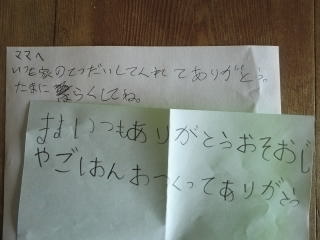 ママへ
いつも家のてつだいしてくれてありがとう。
たまに らくしてね。
ままいつもありがとうおそおじ
やごはんおつくってありがとう